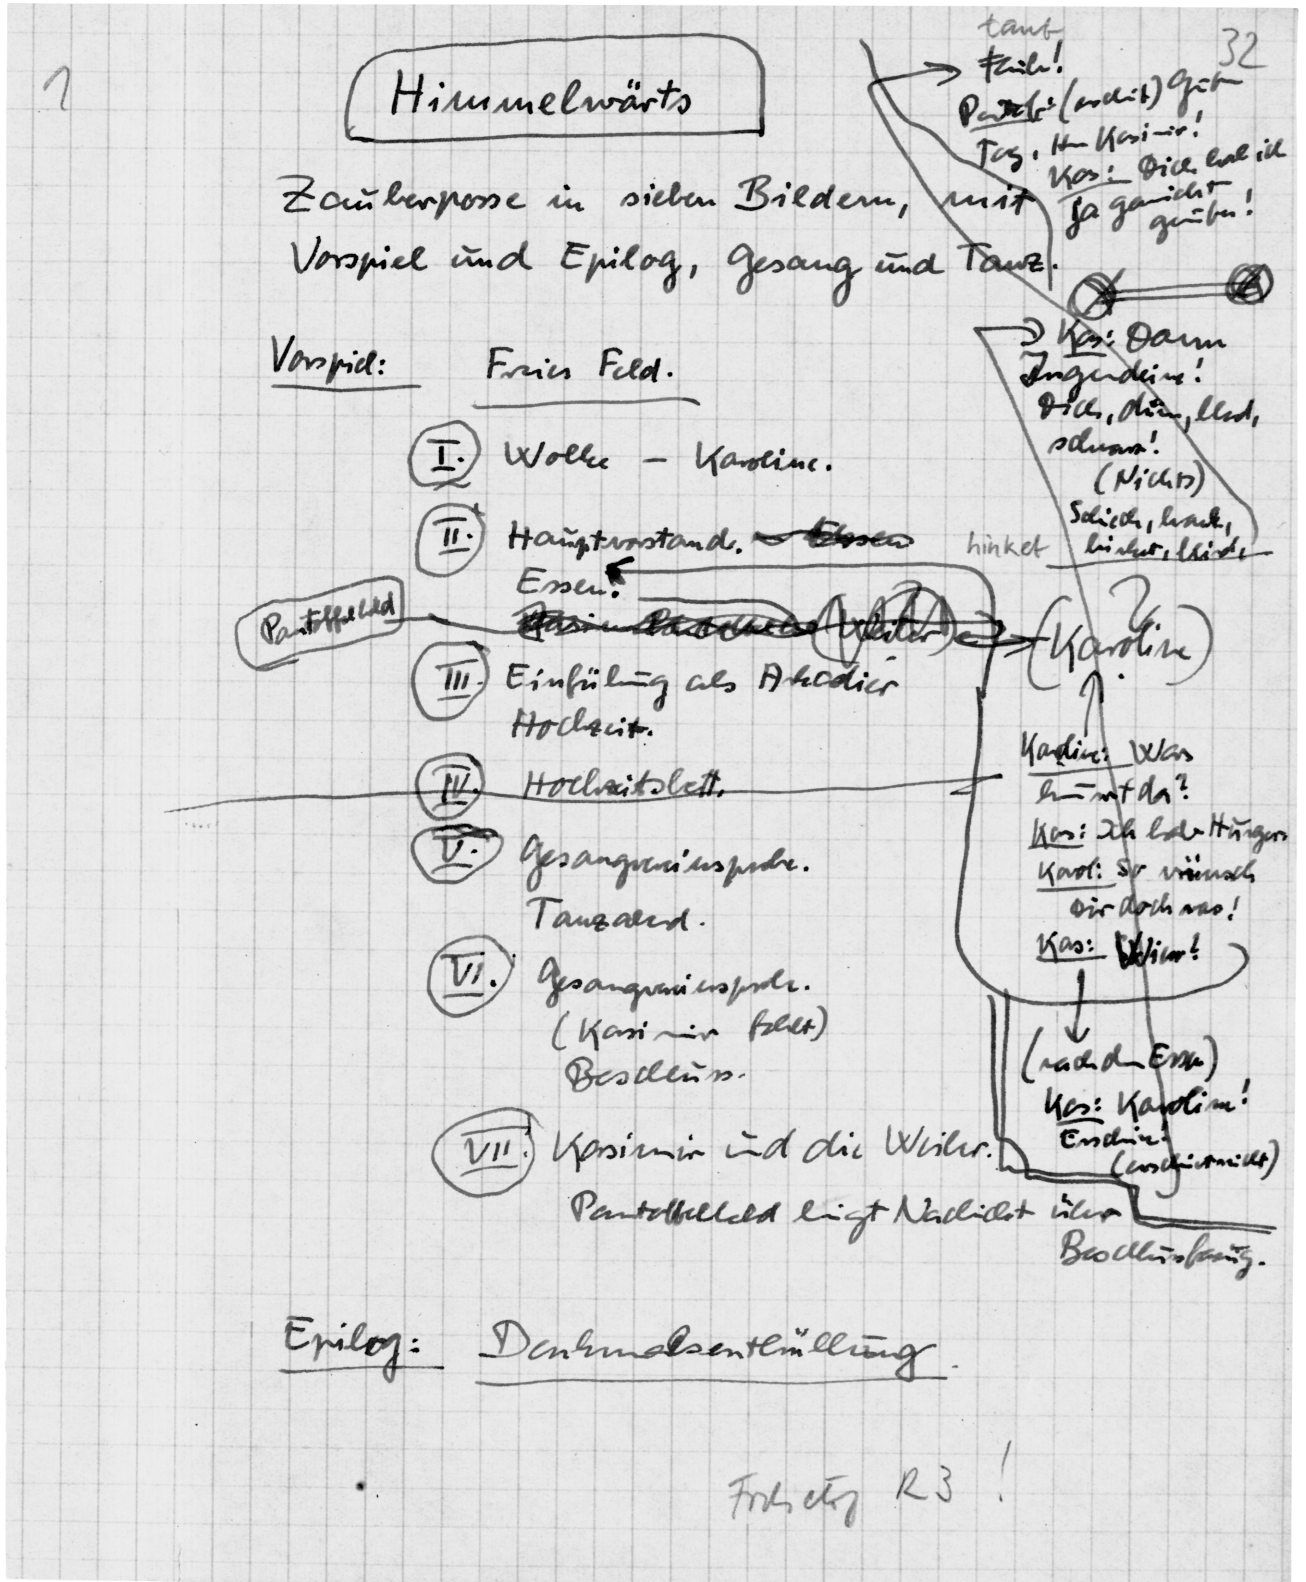 1
32
Himmelwärts
Zauberposse in sieben Bildern, mit
Vorspiel und Epilog, Gesang und Tanz.
Vorspiel: Freies Feld.
I. Wolke – Karoline.
II. Hauptvorstand. – Essen
Essen.
Pantoffelheld
(Weiber)
(Karoline)
?
III. Einfülung als Arkadier
Hochzeit.
IV. Hochzeitsbett.
V. Gesangvereinsprobe.
Tanzabend.
VI. Gesangvereinsprobe.
(Kasimir fehlt)
Beschluss.
VII. Kasimir und die Weiber.
Pantoffelheld bringt Nachricht über
Beschlussfassung.
Epilog: Denkmalsenthüllung.
taub
(erscheint) Guten
Tag, Herr Kasimir!
Kas: Dich hab ich
ja garnicht
gerufen!
Kas: Dann
Irgendeine!
Dick, dünn, blond,
schwarz!
(Nichts)
hinket
Karoline: Was
da?
Kas: Ich habe Hunger
Karol: So wünsch
Dir doch was!
Kas:
(nach dem Essen)
Kas: Karoline!
Erscheine!
(erscheint nicht)
R 3 !